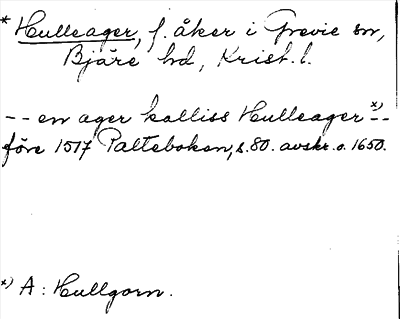 * Hulleager, f. åker i Grevie sn,
Bjäre hd, Krist. l.
-- en ager kalliss Hulleager x) --
före 1517 Palteboken, s. 80. avskr. o. 1650.
x) A: Hullgorn.